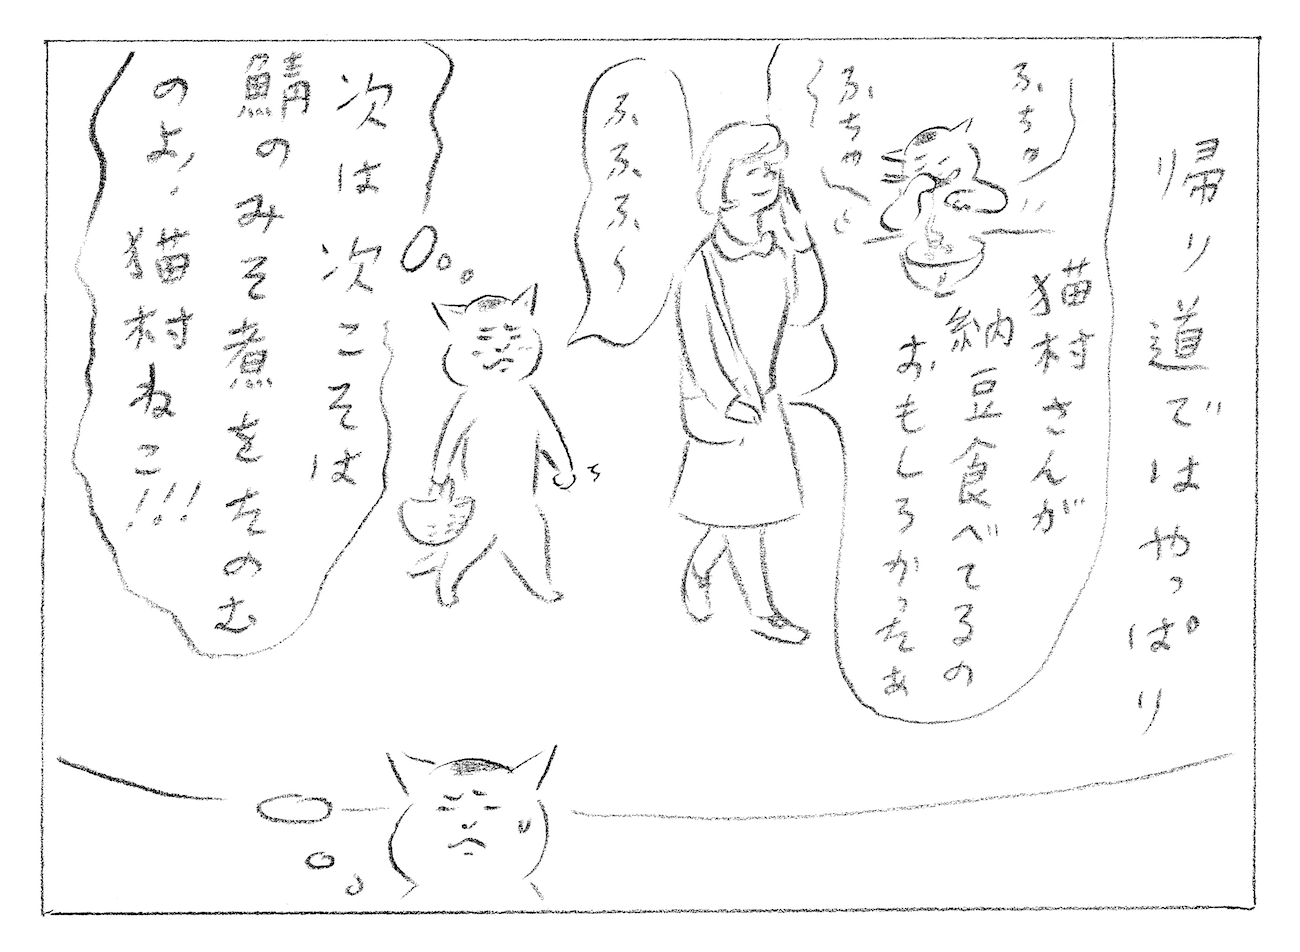 帰り道ではやっぱり
ふちゃ
ふちゃ
猫村さんが
納豆食べてるの
おもしろかったぁ
ふふふ〜
次は次こそは
鯖のみそ煮をたのむ
のよ、猫村ねこ!!!